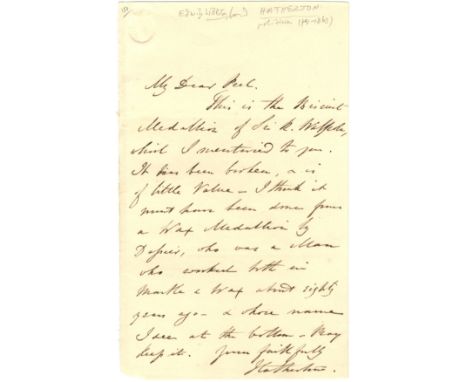 My Dear Peel.
This is the Biscuit
Medallion of Sir R. Walpole,
which I mentioned to you.
It has been broken, & is
of little Value – I think it
must have been done from
a Wax Medallion by
who was a Man
who worked both in
Marble & Wax about eighty
years ago – & whose name
I see at the bottom – Pray
keep it. Yours faithfully
Hatherton.
HATHERTON